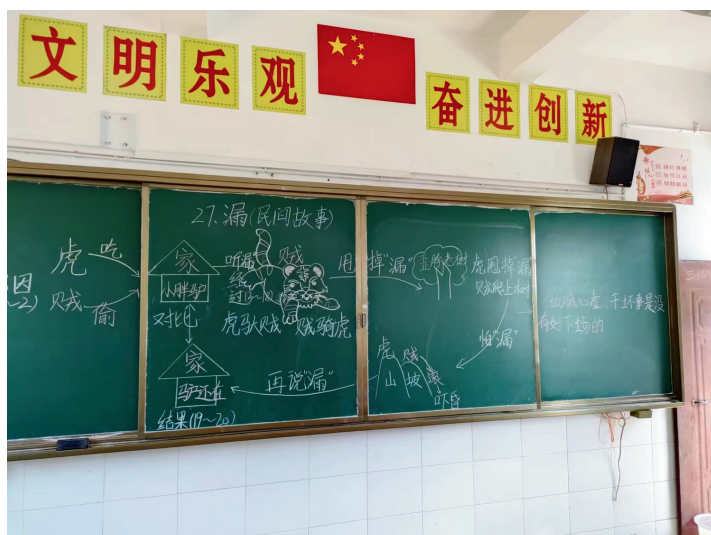 文明乐观
奋进创新
27.漏(民间故事)
虎 吃
贼 偷
家
小胖驴
对比
家
驴还在
结果(19~20)
听漏
贼
虎驮贼
贼骑虎
甩掉"漏"
虎甩掉"漏"
贼爬上树
怕"漏"
虎 贼
山坡滚
吓昏
再说"漏"
做贼心虚、干坏事是没
有好下场的